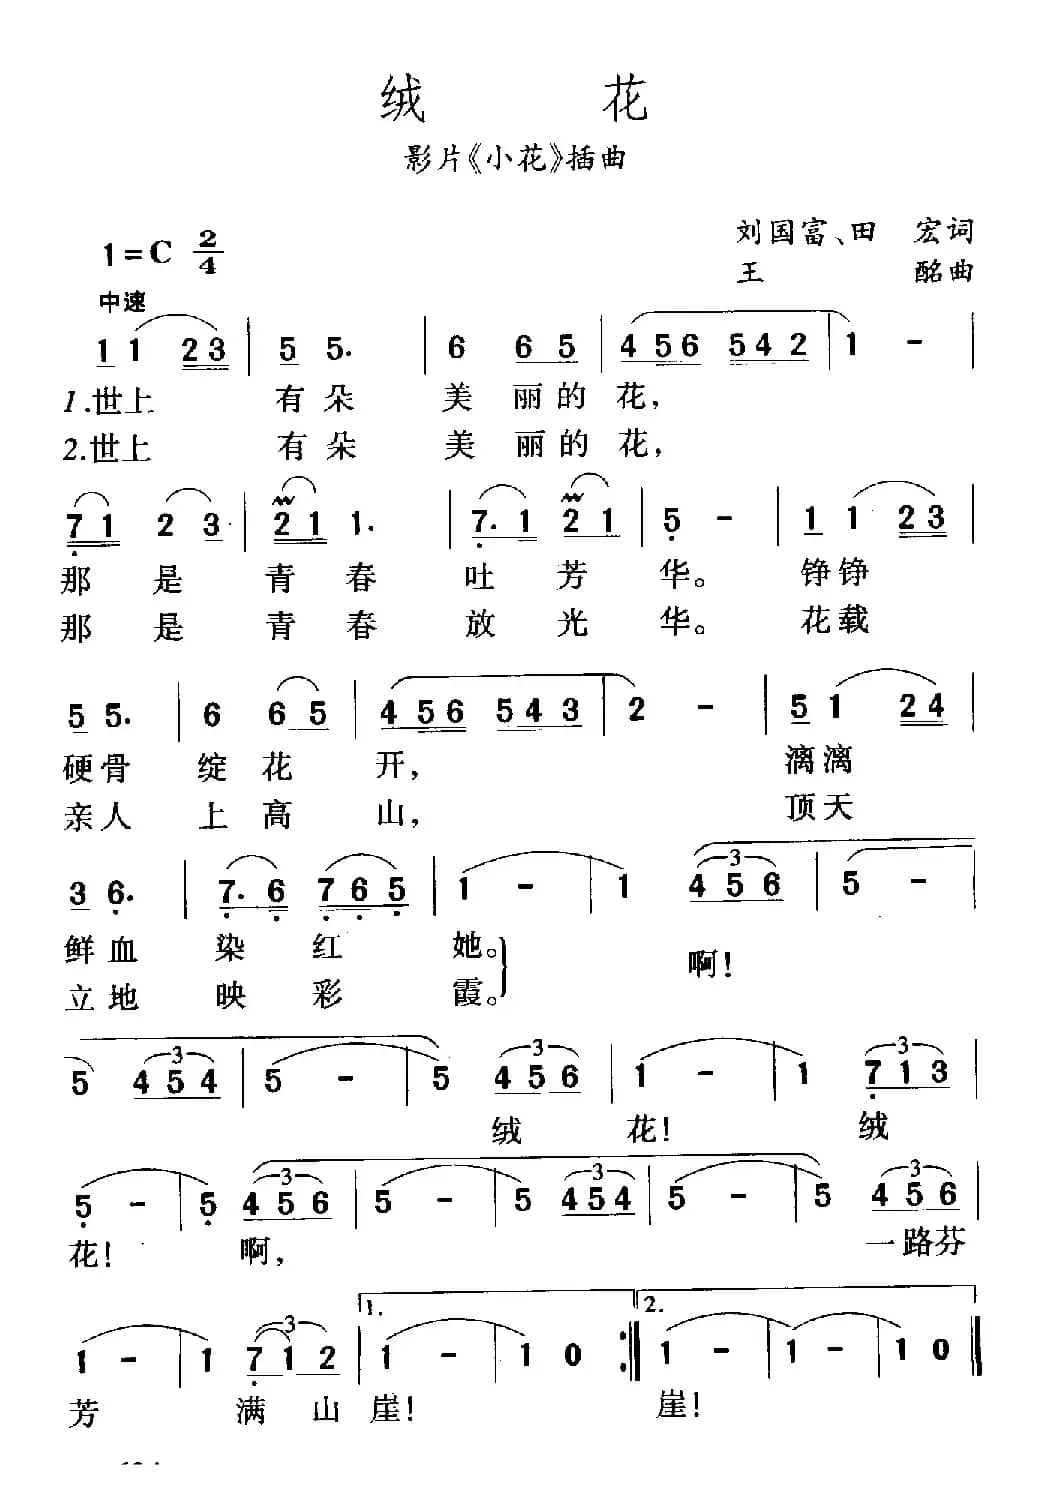 绒 花
影片《小花》插曲
1=C 2/4
刘国富、田 宏词
中速
王 酩曲
1 1 2 3 | 5 5. | 6 6 5 | 4 5 6 5 4 2 | 1 - |
1.世上 有 朵 美 丽 的 花,
2.世上 有 朵 美 丽 的 花,
7 1 2 3 | 2 1 1. | 7. 1 2 1 | 5 - | 1 1 2 3 |
那 是 青 春 吐 芳 华。 铮铮
那 是 青 春 放 光 华。 花载
5 5. | 6 6 5 | 4 5 6 5 4 3 | 2 - | 5 1 2 4 |
硬骨 绽 花 开, 漓漓
亲人 上 高 山, 顶天
3 6. | 7. 6 7 6 5 | 1 - | 1 3 4 5 6 | 5 - |
鲜血 染 红 她。 啊!
立地 映 彩 霞。
5 3 4 5 4 | 5 - | 5 3 4 5 6 | 1 - | 1 3 7 1 3 |
绒 花! 绒
5 - | 5 3 4 5 6 | 5 - | 5 3 4 5 4 | 5 - | 5 3 4 5 6 |
花! 啊, 一路芬
1. 2.
1 - | 1 3 7 1 2 | 1 - | 1 0 :‖ 1 - | 1 - | 1 0 ‖
芳 满 山 崖! 崖!